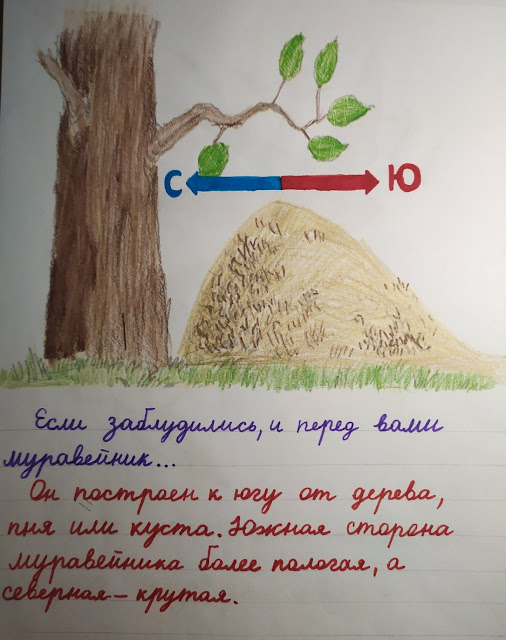 С Ю
Если заблудились, и перед вами
муравейник...
Он построен к югу от дерева,
пня или куста. Южная сторона
муравейника более пологая, а
северная – крутая.